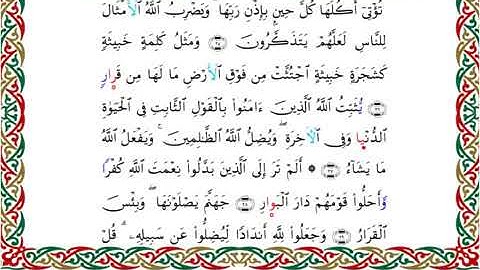 تُؤْتِىٓ أُكُلَهَا كُلَّ حِينٍۭ بِإِذْنِ رَبِّهَا ۗ وَيَضْرِبُ ٱللَّهُ ٱلْأَمْثَالَ
لِلنَّاسِ لَعَلَّهُمْ يَتَذَكَّرُونَ ﴿٢٥﴾ وَمَثَلُ كَلِمَةٍ خَبِيثَةٍ
كَشَجَرَةٍ خَبِيثَةٍ ٱجْتُثَّتْ مِن فَوْقِ ٱلْأَرْضِ مَا لَهَا مِن قَرَارٍ
﴿٢٦﴾ يُثَبِّتُ ٱللَّهُ ٱلَّذِينَ ءَامَنُوا۟ بِٱلْقَوْلِ ٱلثَّابِتِ فِى ٱلْحَيَوٰةِ
ٱلدُّنْيَا وَفِى ٱلْأَخِرَةِ ۖ وَيُضِلُّ ٱللَّهُ ٱلظَّٰلِمِينَ ۚ وَيَفْعَلُ ٱللَّهُ
مَا يَشَآءُ ﴿٢٧﴾ ۞ أَلَمْ تَرَ إِلَى ٱلَّذِينَ بَدَّلُوا۟ نِعْمَتَ ٱللَّهِ كُفْرًا
وَأَحَلُّوا۟ قَوْمَهُمْ دَارَ ٱلْبَوَارِ ﴿٢٨﴾ جَهَنَّمَ يَصْلَوْنَهَا ۖ وَبِئْسَ
ٱلْقَرَارُ ﴿٢٩﴾ وَجَعَلُوا۟ لِلَّهِ أَندَادًا لِّيُضِلُّوا۟ عَن سَبِيلِهِۦ ۗ قُلْ